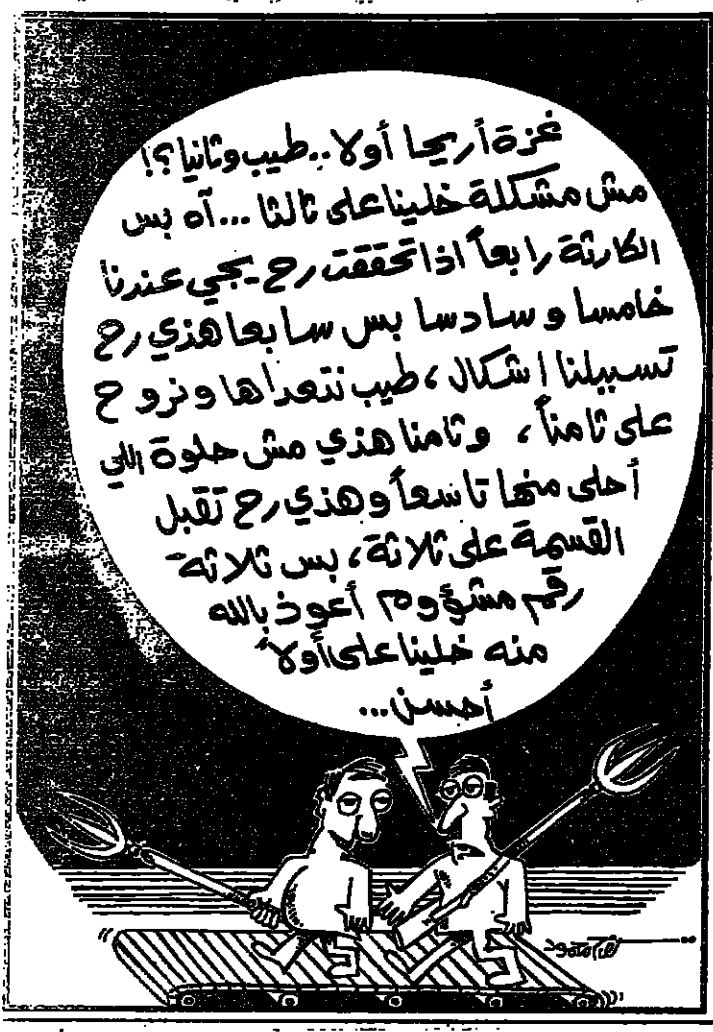 غزة أريحا أولا.. طيب وثانيا؟!
مش مشكلة خلينا على ثالثا... آه بس
الكارثة رابعاً اذا تحققت رح يجي عندنا
خامسا وسادسا بس سابعا هذي رح
تسببلنا اشكال، طيب نتعداها ونروح
على ثامناً، وثامنا هذي مش حلوة اللي
أحلى منها تاسعاً وهذي رح تقبل
القسمة على ثلاثة، بس ثلاثة
رقم مشؤوم أعوذ بالله
منه خلينا على أولاً
أحسن...